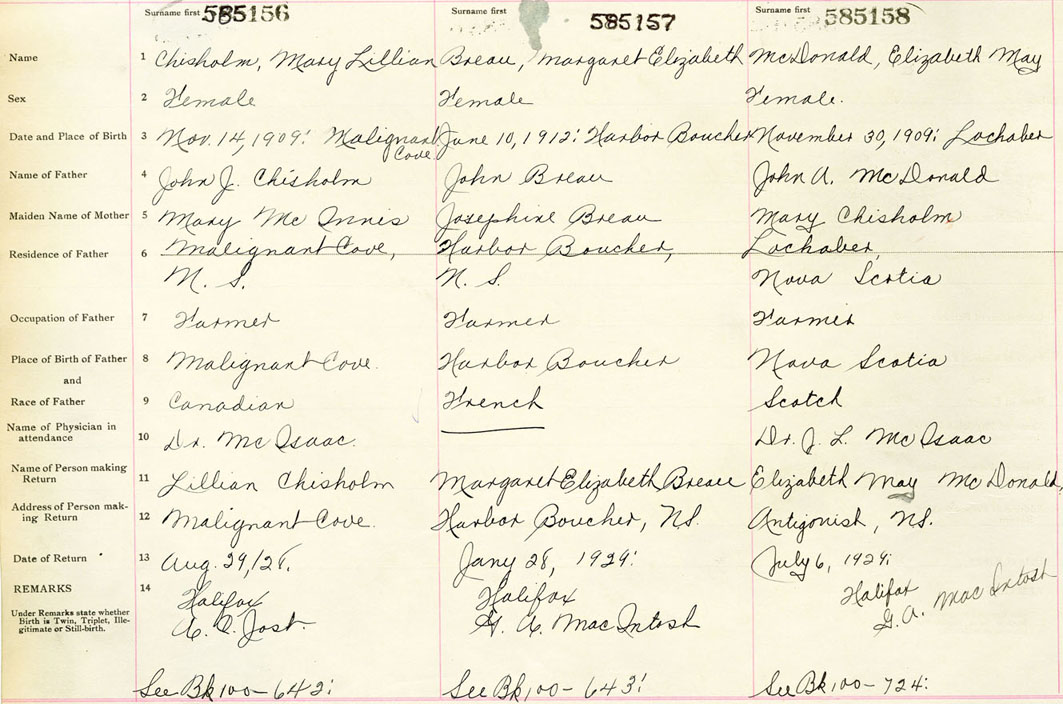 Surname first 585156
Surname first 585157
Surname first 585158
Name 1 Chisholm, Mary Lillian
Breau, Margaret Elizabeth
McDonald, Elizabeth May
Sex 2 Female
Female
Female.
Date and Place of Birth 3 Nov. 14, 1909: Malignant
Cove
June 10, 1912: Harbor Boucher
November 30, 1909: Lochaber
Name of Father 4 John J. Chisholm
John Breau
John A. McDonald
Maiden Name of Mother 5 Mary McInnis
Josephine Breau
Mary Chisholm
Residence of Father 6 Malignant Cove,
N. S.
Harbor Boucher,
N. S.
Lochaber,
Nova Scotia
Occupation of Father 7 Farmer
Farmer
Farmer
Place of Birth of Father 8 Malignant Cove.
Harbor Boucher
Nova Scotia
and
Race of Father 9 Canadian
French
Scotch
Name of Physician in
attendance 10 Dr. McIsaac.
Dr. J. L. McIsaac
Name of Person making
Return 11 Lillian Chisholm
Margaret Elizabeth Breau
Elizabeth May McDonald,
Address of Person mak-
ing Return 12 Malignant Cove.
Harbor Boucher, NS.
Antigonish, NS.
Date of Return 13 Aug. 29, /28.
Jany 28, 1929:
July 6, 1929:
REMARKS 14
Under Remarks state whether
Birth is Twin, Triplet, Ille-
gitimate or Still-birth.
Halifax
A. C. Jost.
Halifax
G. A. MacIntosh
Halifax
G. A. MacIntosh
See Bk 100 - 642:
See Bk 100 - 643:
See Bk 100 - 724: